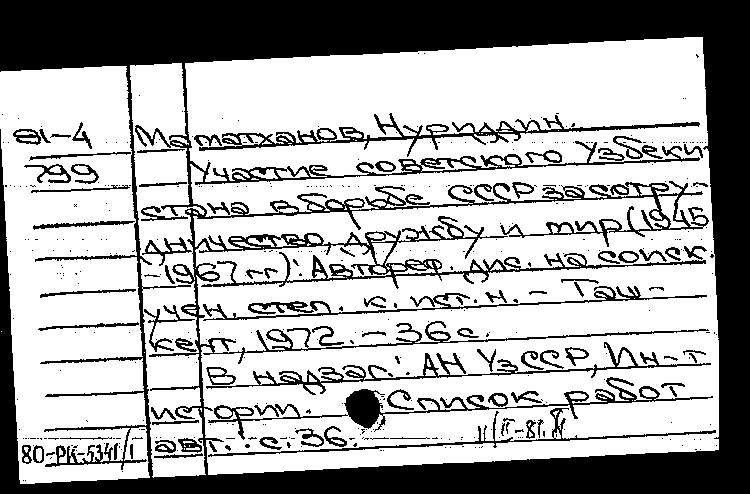 81-4 Маматханов, Нуриддин.
799 Участие советского Узбеки-
стана в борьбе СССР за сотру-
дничество, дружбу и мир (1945
-1967 гг): Автореф. дис. на соиск.
учен. степ. к. ист. н. - Таш-
кент, 1972. - 36 с.
В надзаг.: АН УзССР, Ин-т
истории. Список работ
авт.: с. 36.
80-РК-5341/1